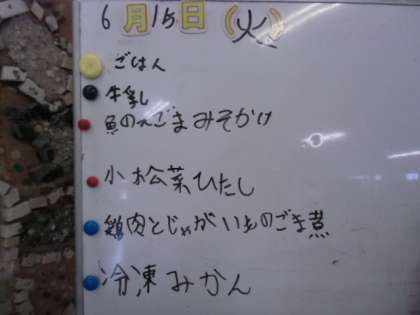 6月15日(火)
ごはん
牛乳
魚のえごまみそかけ
小松菜ひたし
鶏肉とじゃがいものごま煮
冷凍みかん